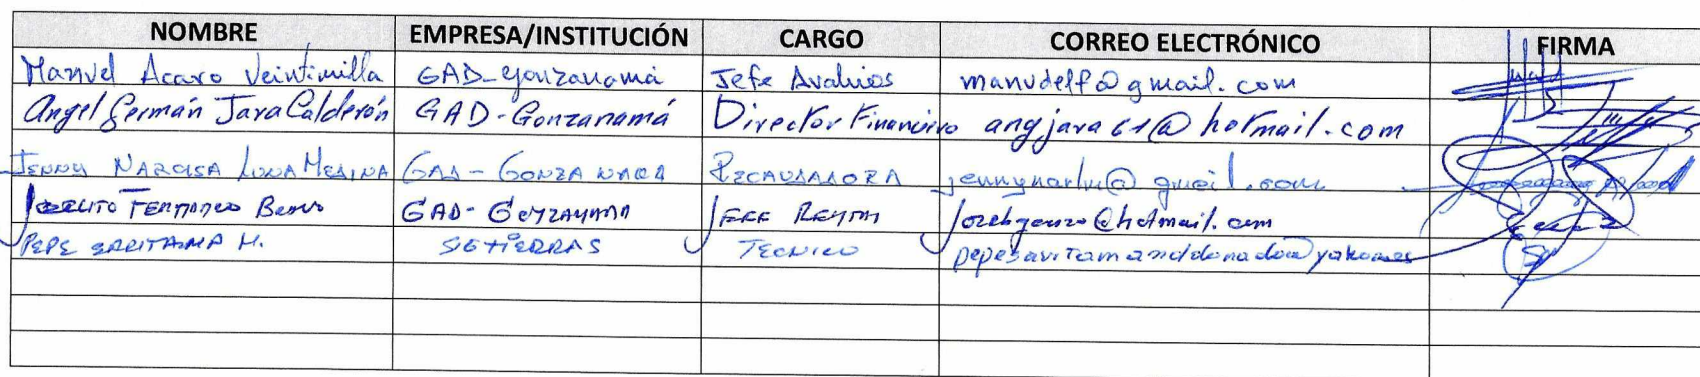 NOMBRE EMPRESA/INSTITUCIÓN CARGO CORREO ELECTRÓNICO FIRMA
Manuel Acaro Veintimilla GAD-Gonzanamá Jefe Avalúos manudelf@gmail.com
Angel Germán Jara Calderón GAD-Gonzanamá Director Financiero angjara61@hotmail.com
JENNY NARCISA LUNA MEDINA GAD-GONZANAMA RECAUDADORA jennynarlu@gmail.com
FERNANDO GAD-GONZANAMA JEFE RENTAS
PEPE SARITAMA M. SETIERRAS TECNICO